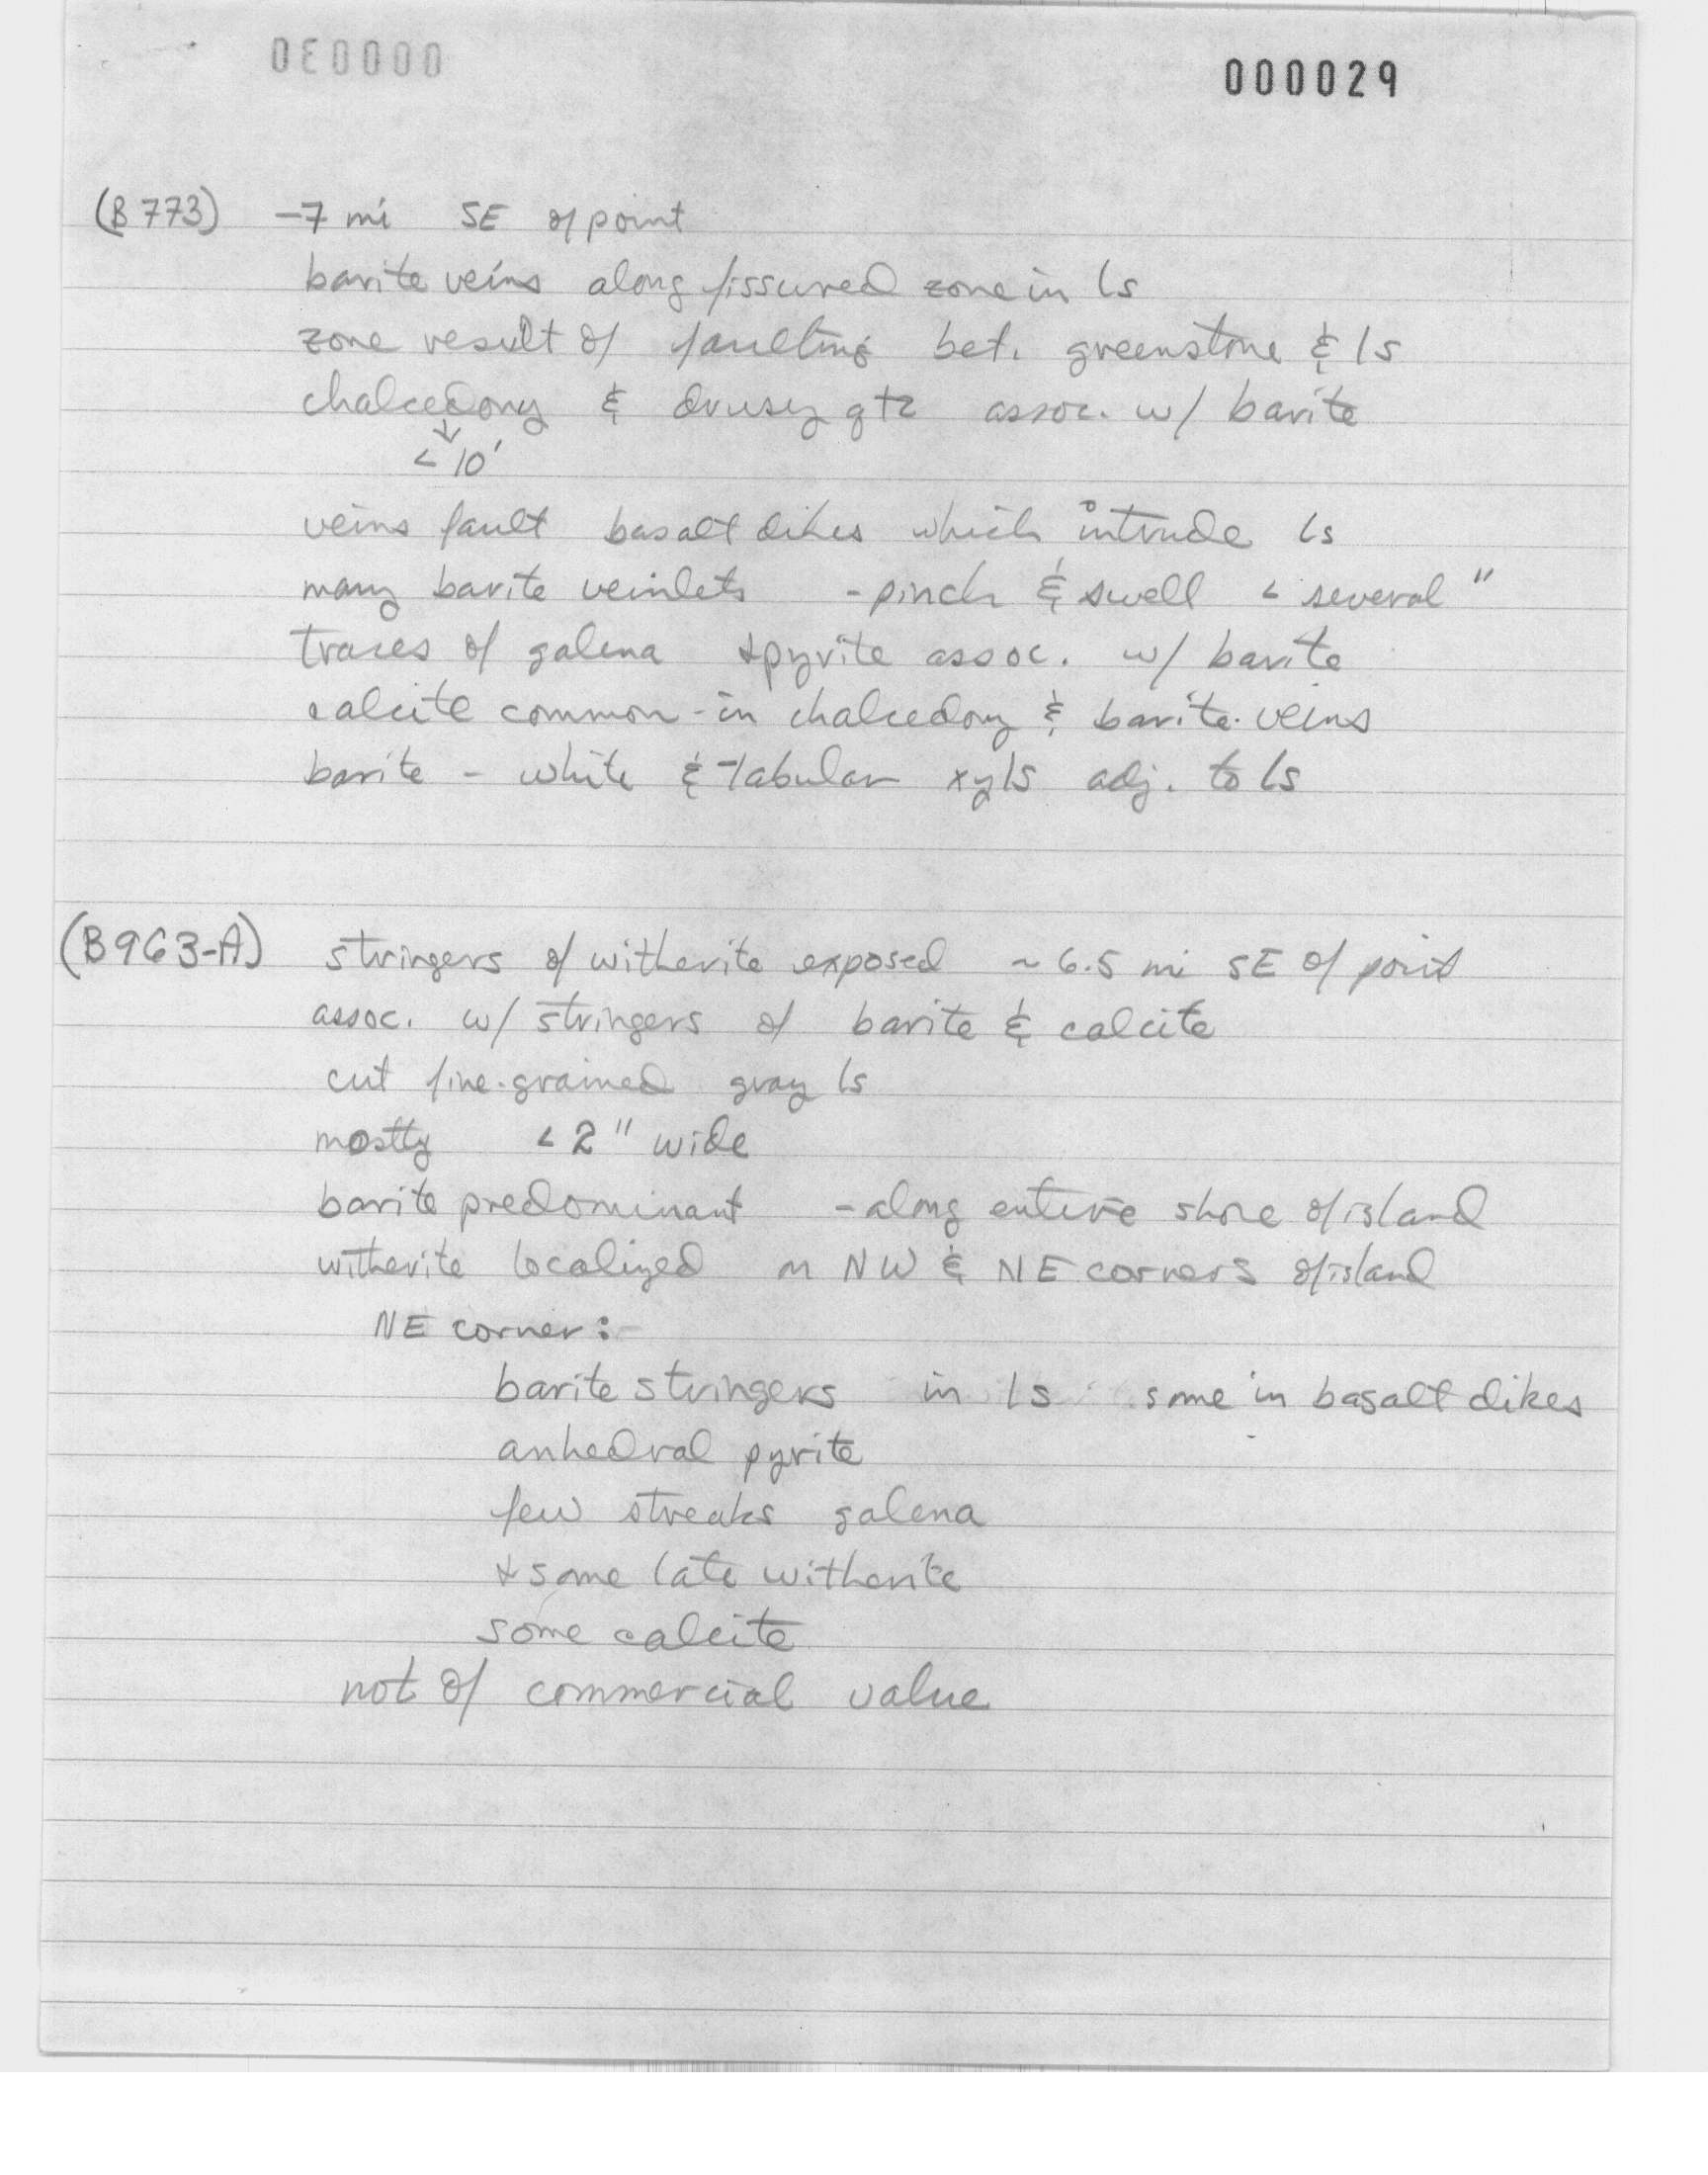 000029
(B 773) -7 mi SE of point
barite veins along fissured zone in ls
zone result of faulting bet. greenstone & ls
chalcedony & drusy qtz assoc. w/ barite
< 10'
veins fault basalt dikes which intrude ls
many barite veinlets - pinch & swell < several "
traces of galena & pyrite assoc. w/ barite
calcite common - in chalcedony & barite veins
barite - white & tabular xyls adj. to ls
(B963-A) stringers of witherite exposed ~ 6.5 mi SE of point
assoc. w/ stringers of barite & calcite
cut fine-grained gray ls
mostly < 2" wide
barite predominant - along entire shore of island
witherite localized on NW & NE corners of island
NE corner:-
barite stringers in ls some in basalt dikes
anhedral pyrite
few streaks galena
& some late witherite
some calcite
not of commercial value